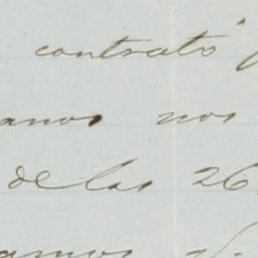 contrato
anos nos
de las 26
amos